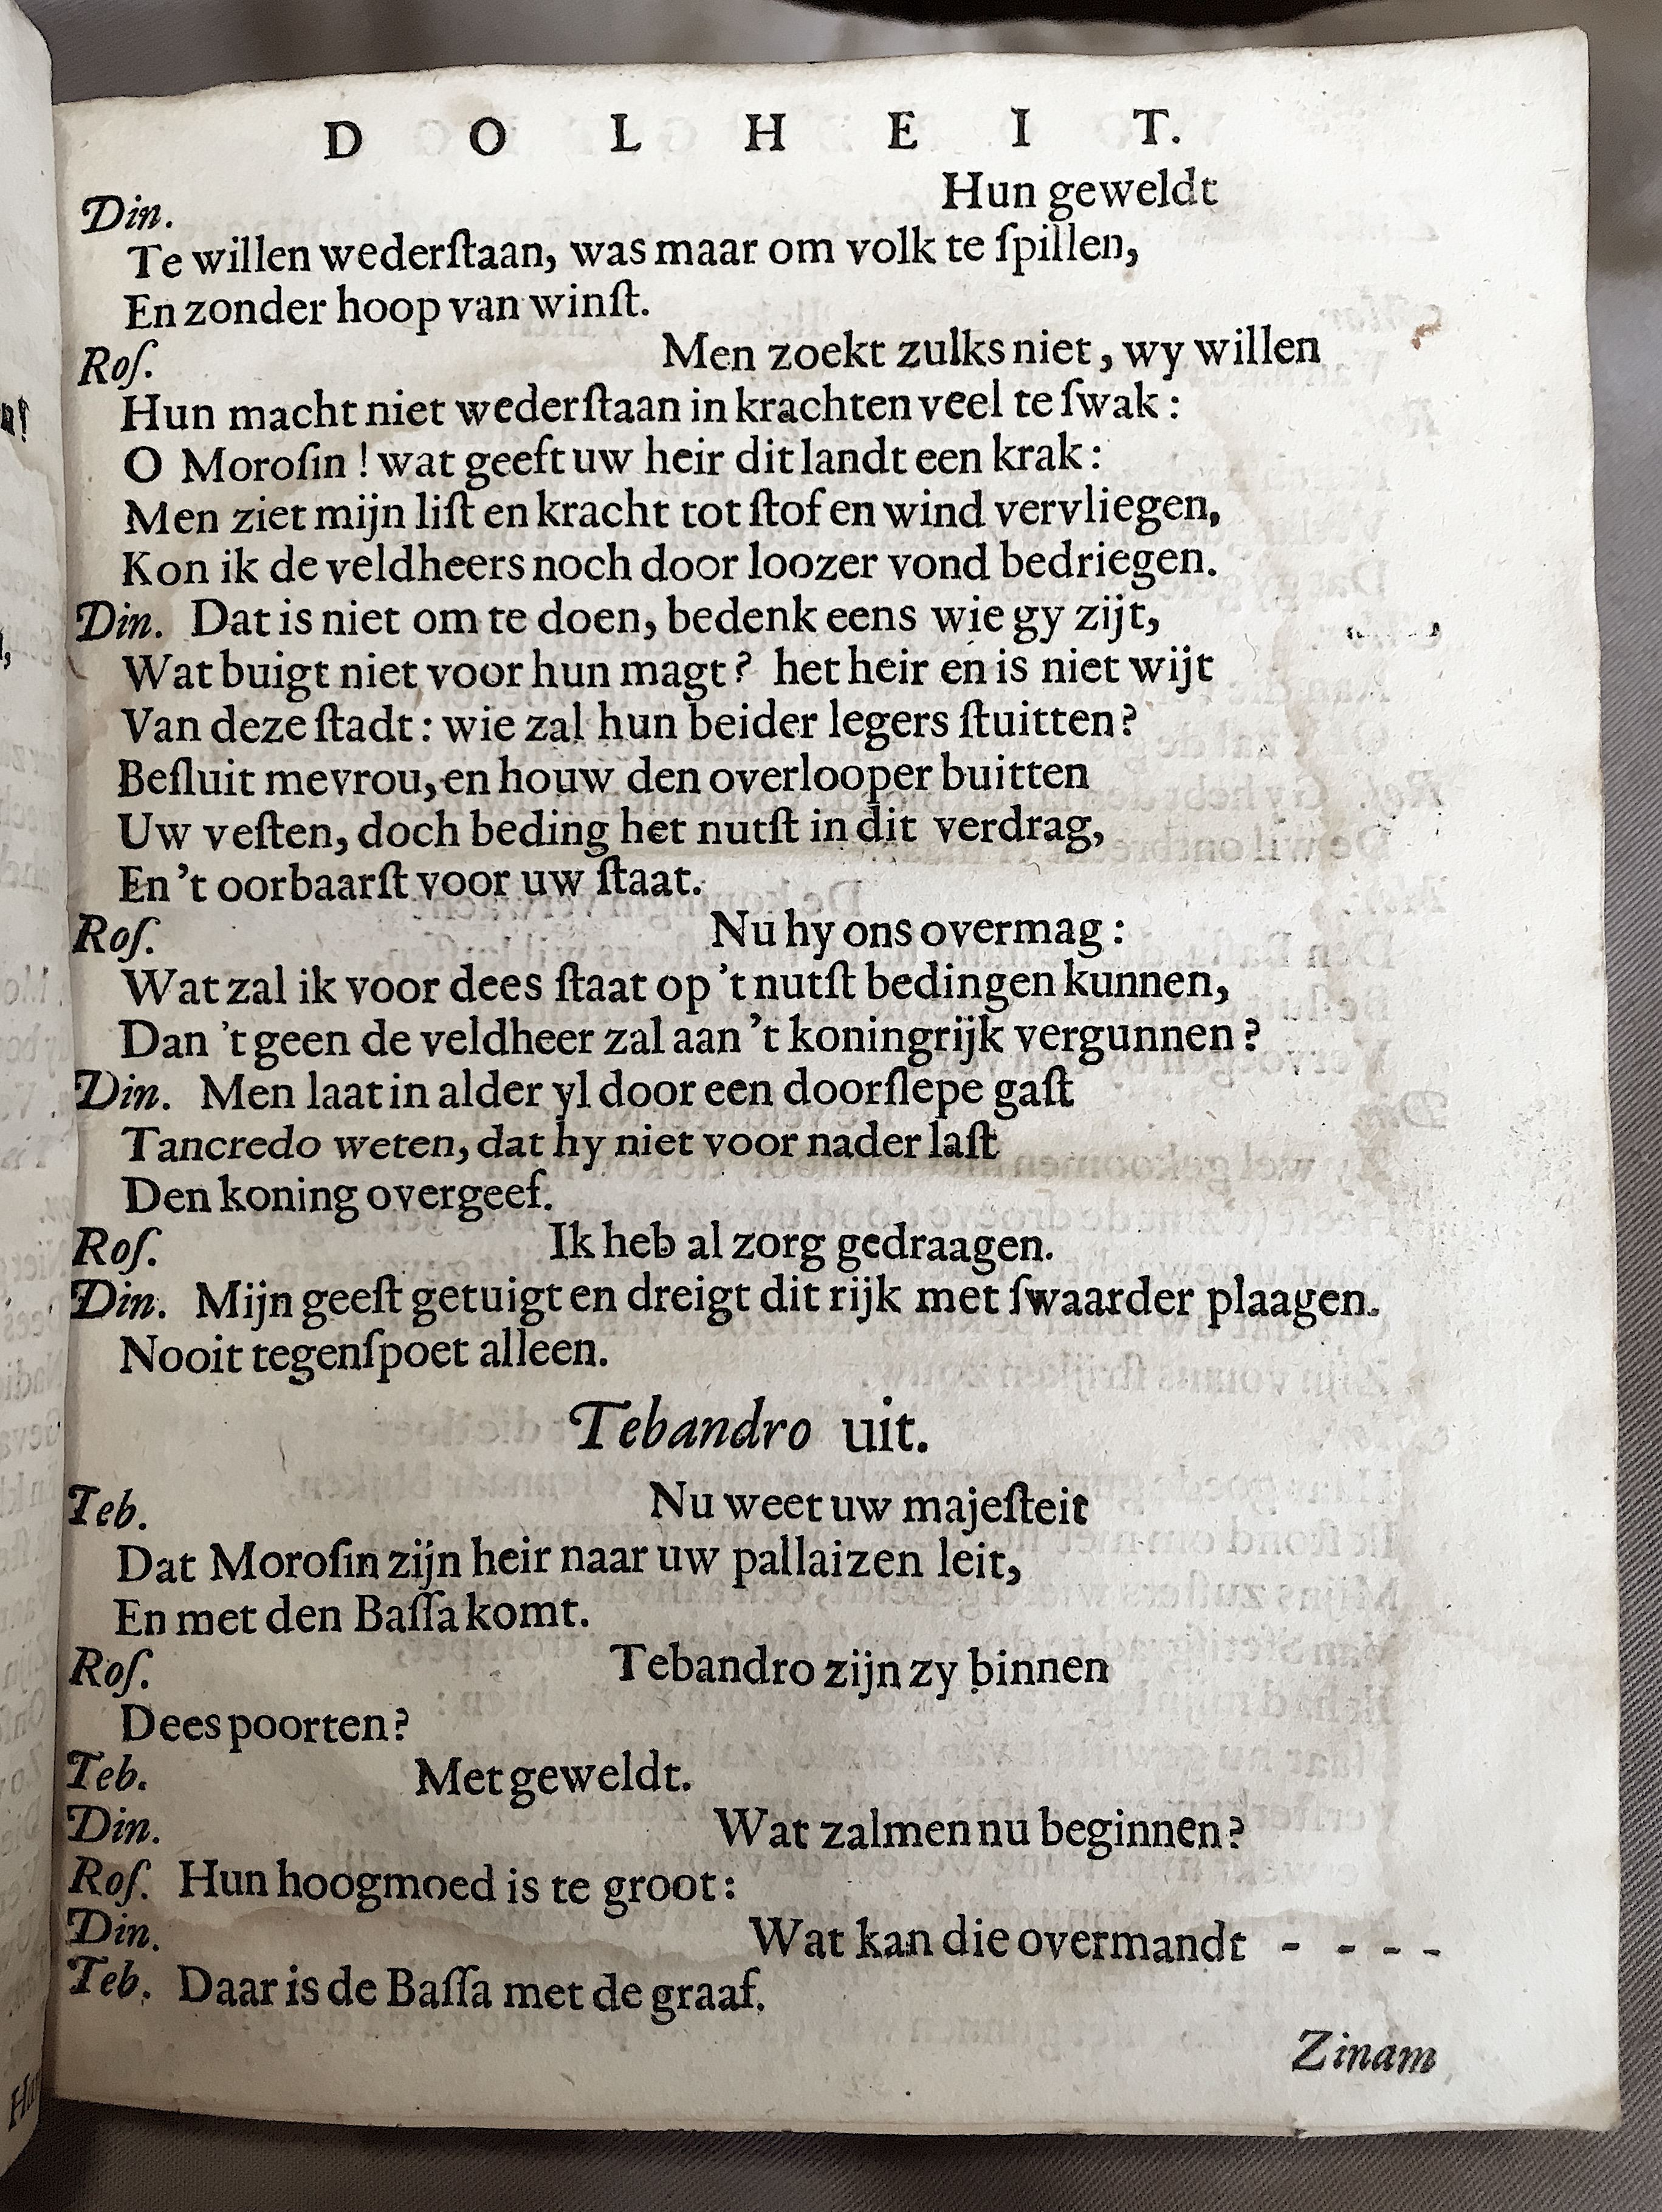 D O L H E I T.
Din. Hun geweldt
Te willen wederſtaan, was maar om volk te ſpillen,
En zonder hoop van winſt.
Roſ. Men zoekt zulks niet, wy willen
Hun macht niet wederſtaan in krachten veel te ſwak:
O Moroſin! wat geeft uw heir dit landt een krak:
Men ziet mijn liſt en kracht tot ſtof en wind vervliegen,
Kon ik de veldheers noch door loozer vond bedriegen.
Din. Dat is niet om te doen, bedenk eens wie gy zijt,
Wat buigt niet voor hun magt? het heir en is niet wijt
Van deze ſtadt: wie zal hun beider legers ſtuitten?
Beſluit mevrou, en houw den overlooper buitten
Uw veſten, doch beding het nutſt in dit verdrag,
En 't oorbaarſt voor uw ſtaat.
Roſ. Nu hy ons overmag:
Wat zal ik voor dees ſtaat op 't nutſt bedingen kunnen,
Dan 't geen de veldheer zal aan 't koningrijk vergunnen?
Din. Men laat in alder yl door een doorſlepe gaſt
Tancredo weten, dat hy niet voor nader laſt
Den koning overgeef.
Roſ. Ik heb al zorg gedraagen.
Din. Mijn geeſt getuigt en dreigt dit rijk met ſwaarder plaagen.
Nooit tegenſpoet alleen.
Tebandro uit.
Teb. Nu weet uw majeſteit
Dat Moroſin zijn heir naar uw pallaizen leit,
En met den Baſſa komt.
Roſ. Tebandro zijn zy binnen
Dees poorten?
Teb. Met geweldt.
Din. Wat zalmen nu beginnen?
Roſ. Hun hoogmoed is te groot:
Din. Wat kan die overmandt - - - -
Teb. Daar is de Baſſa met de graaf.
Zinam